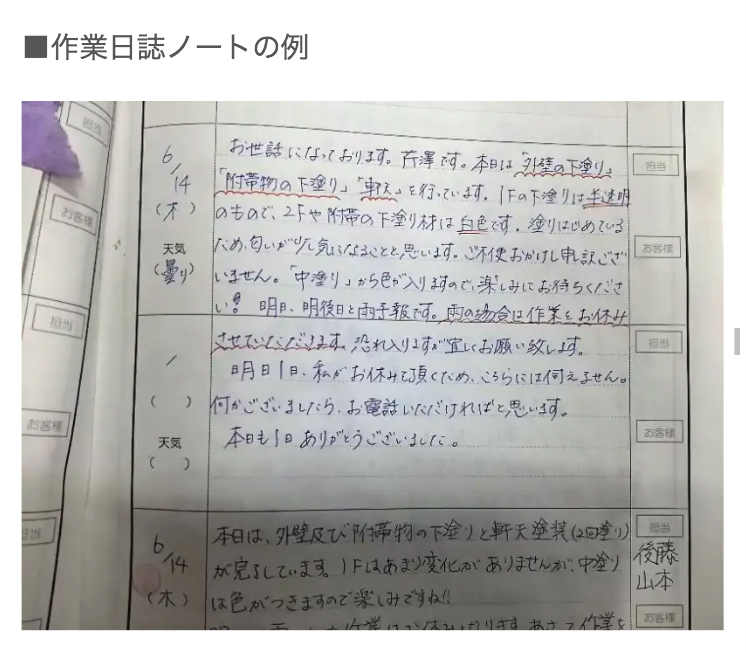 ■作業日誌ノートの例
担当
お客様
担当
お客様
担当
6/14
(木)
天気
(曇り)
お世話になっております。芹澤です。本日は「外壁の下塗り」
「附帯物の下塗り」「軒天」を行っています。1Fの下塗りは半透明
のもので、2Fや附帯の下塗り材は白色です。塗りはじめている
ため、匂いが少し気になることと思います。ご不便おかけし申訳ござ
いません。「中塗り」から色が入りますので、楽しみにお待ちくださ
い!明日、明後日と雨予報です。雨の場合は作業をお休み
担当
お客様
/
( )
天気
( )
させていただきます。恐れ入りますが宜しくお願い致します。
明日1日、私がお休みを頂くため、こちらには伺えません。
何かございましたら、お電話いただければと思います。
本日も1日ありがとうございました。
担当
お客様
6/14
(木)
本日は、外壁及び附帯物の下塗りと軒天塗装(2回塗り)
が完了しています。1Fはあまり変化がありませんが、中塗り
は色がつきますので楽しみですね!!
担当
後藤
山本
お客様